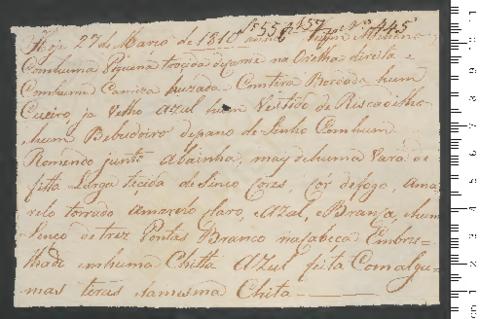 Hoje 27 de Março de 1810 Menina
Com huma piquena trocida de frante na Orelha direita e
Com huma Camiza buzada Comtira Bordada hum
Cueiro, ja Velho Azul hum Vestido de Riscadilho
hum Bebedoiro de pano de Linho Com hum
Remendo junto abainha, mais de huma Vara de
fitta Larga tecida de Sinco Cores, Côr de fogo, Ama
relo torrado amarelo Claro, e Azul, e Branca, e hum
Lenço de trez Pontas Branco na Cabeca Embru=
lhada em huma Chitta Azul feita Com algu
mas teras da mesma Chita
445